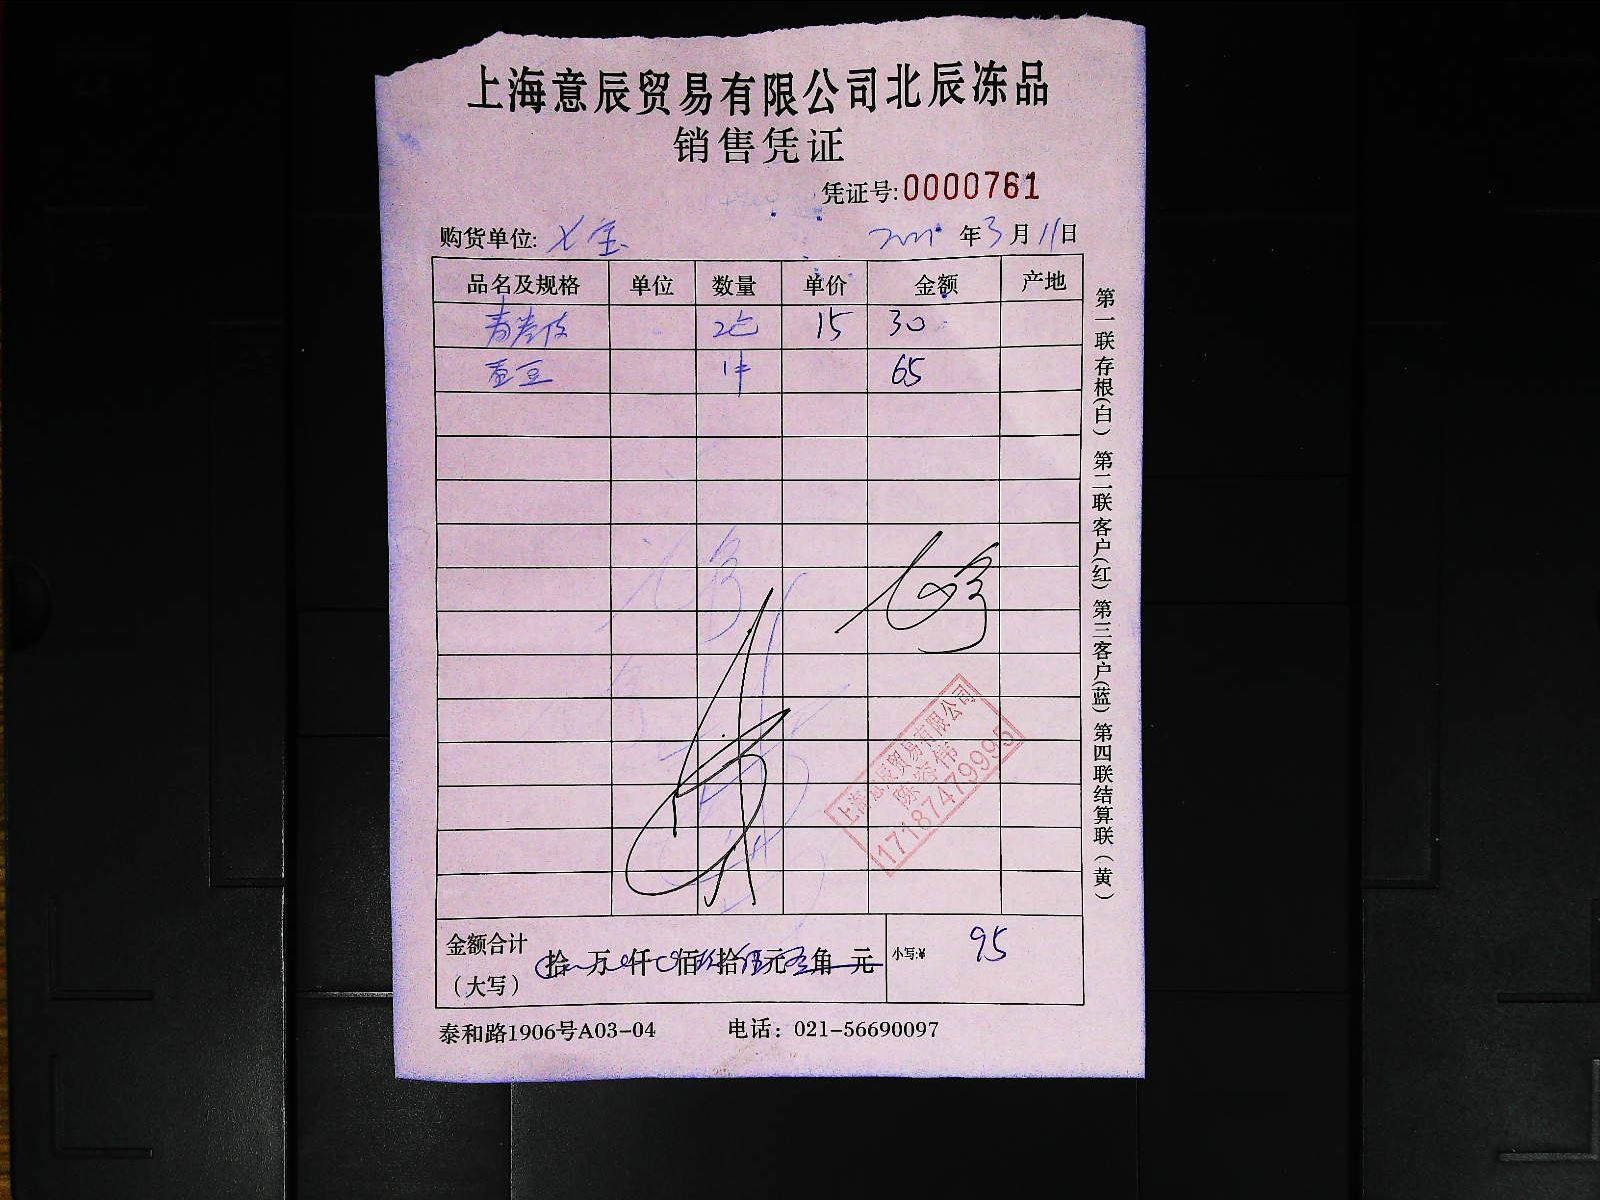 上海意辰贸易有限公司北辰冻品
销售凭证
凭证号:0000761
购货单位: 年3月11日
品名及规格 单位 数量 单价 金额 产地
2包 15 30
豆 1件 65
金额合计 拾 万 仟 佰 拾 元 角 元 小写:¥ 95
（大写）
泰和路1906号A03-04 电话：021-56690097
第一联存根(白) 第二联客户(红) 第三客户(蓝) 第四联结算联(黄)
上海意辰贸易有限公司
17187479995